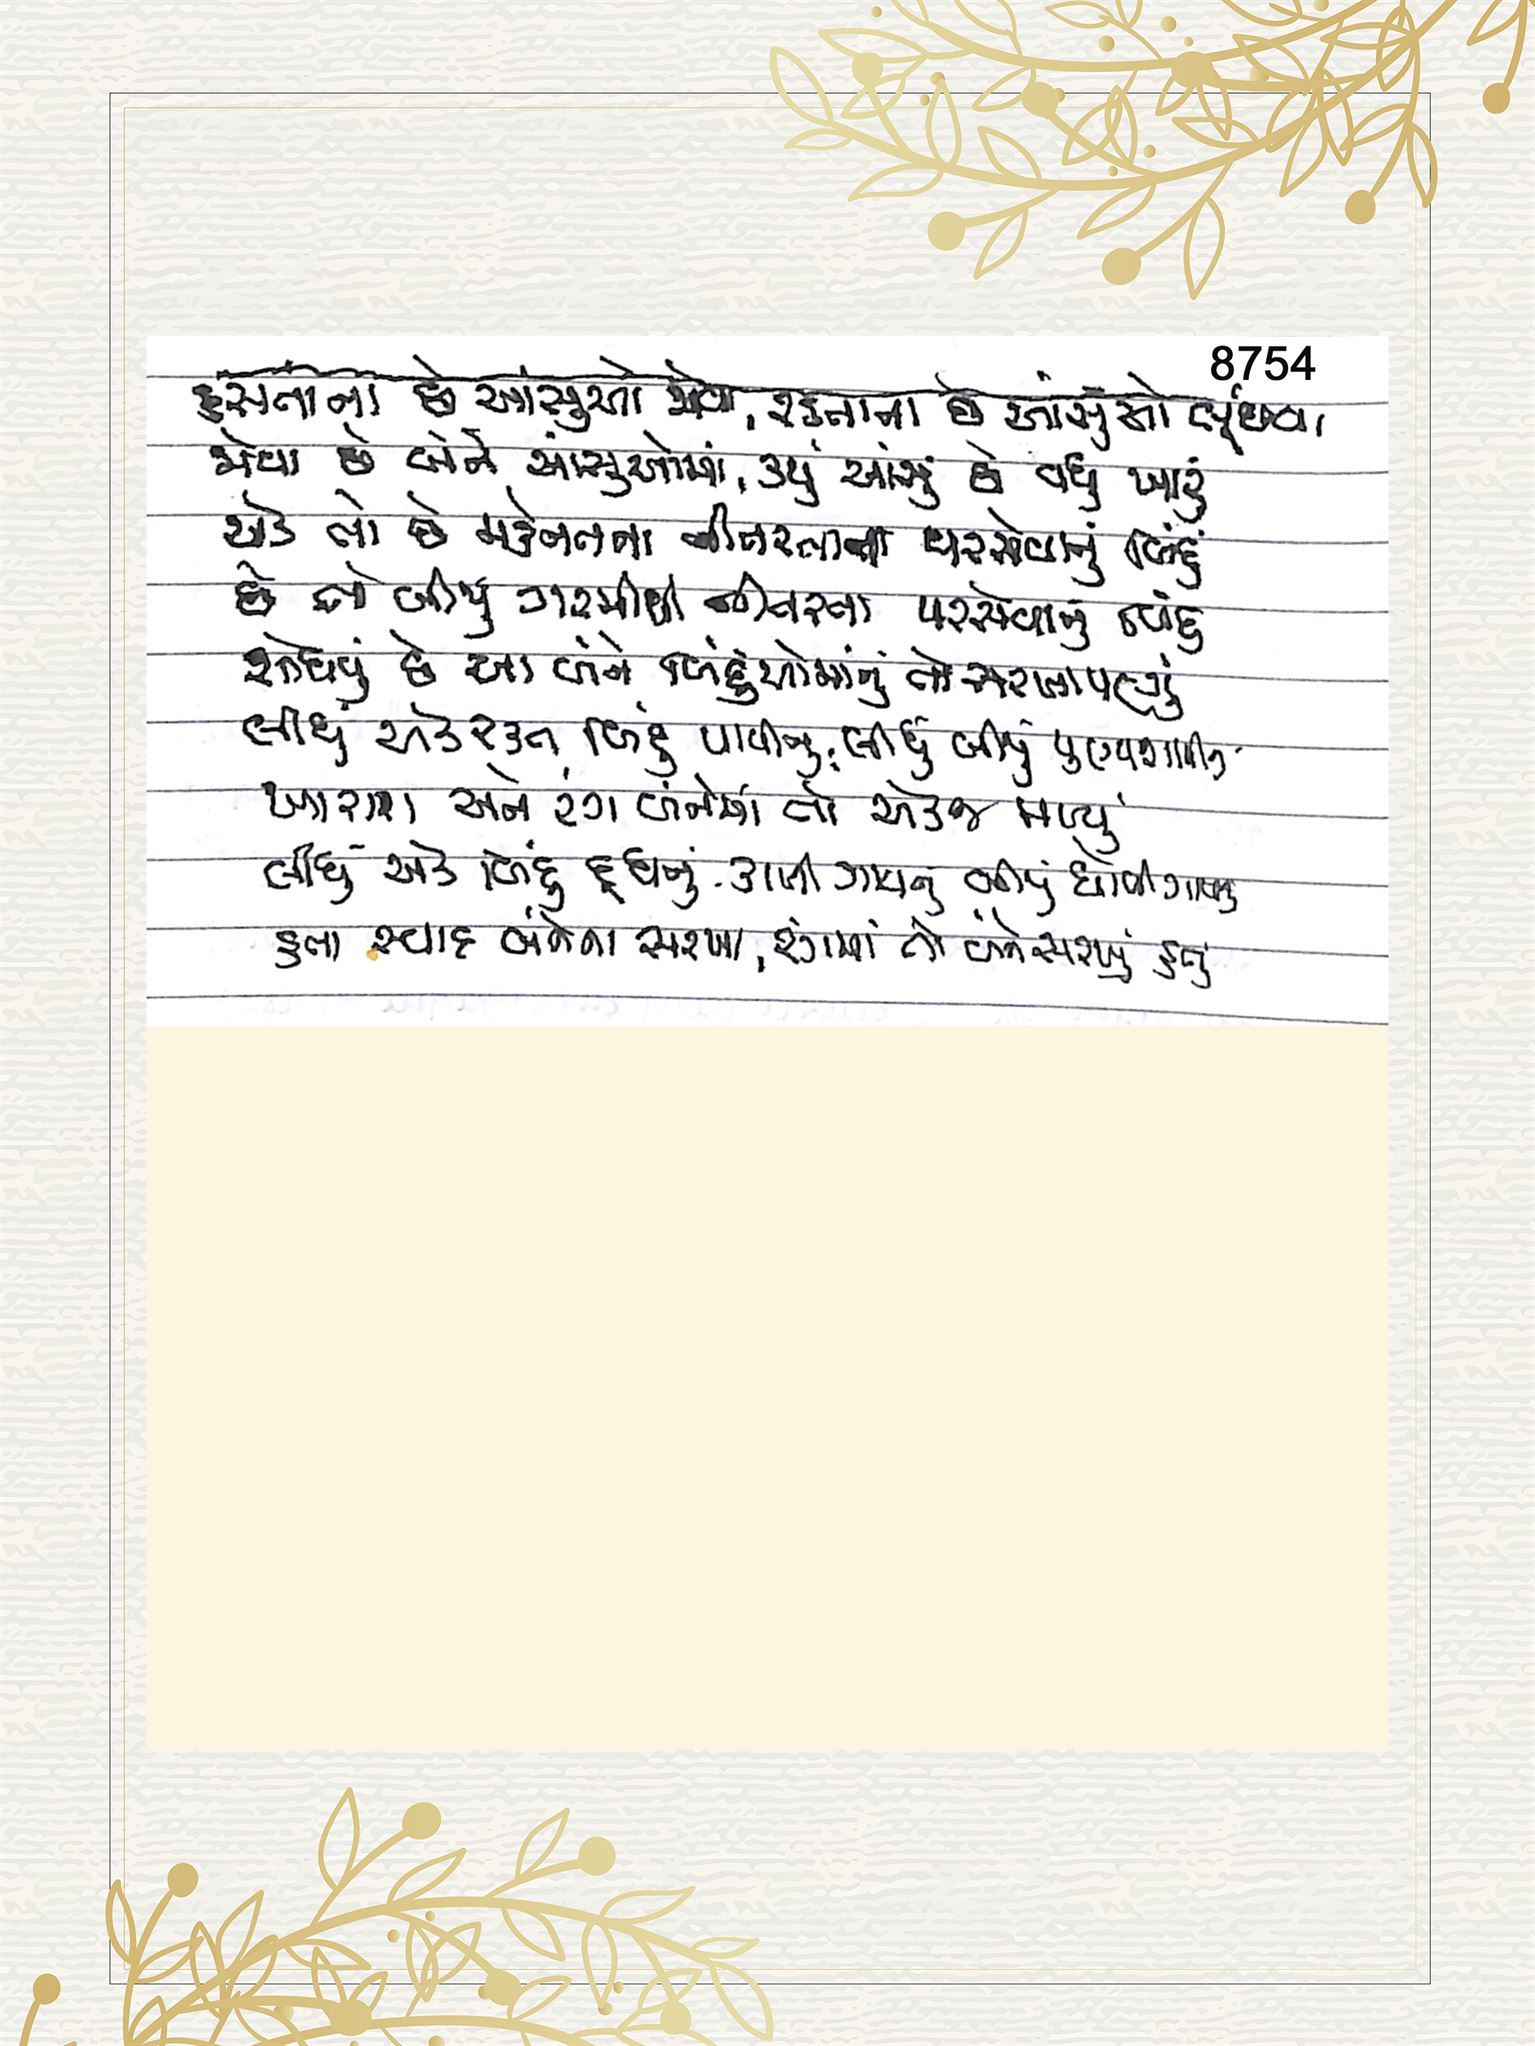 8754
હસતાના છે આંસુઓ જોયા, રડતાના છે આંસુઓ લૂંછવા
જોવા છે બંને આંસુઓમાં, કયું આંસું છે વધુ ખારું
એક તો છે મહેનતના નીતરતાના પરસેવાનું બિંદું
છે તો બીજું ગરમીથી નીતરતા પરસેવાનું બિંદુ
શોધવું છે આ બંને બિંદુંઓમાંનું તો સરખાપણું
લીધું એક રક્ત બિંદું પાપીનુ, લીધું બીજું પુણ્યશાળીનુ
ખારાશ અને રંગ બંનેમાં તો એકજ મળ્યું
લીધું એક બિંદું દૂધનું કાળી ગાયનુ બીજું ધોળી ગાયનુ
હતા સ્વાદ બંનેના સરખા, રંગમાં તો બંને સરખું હતું